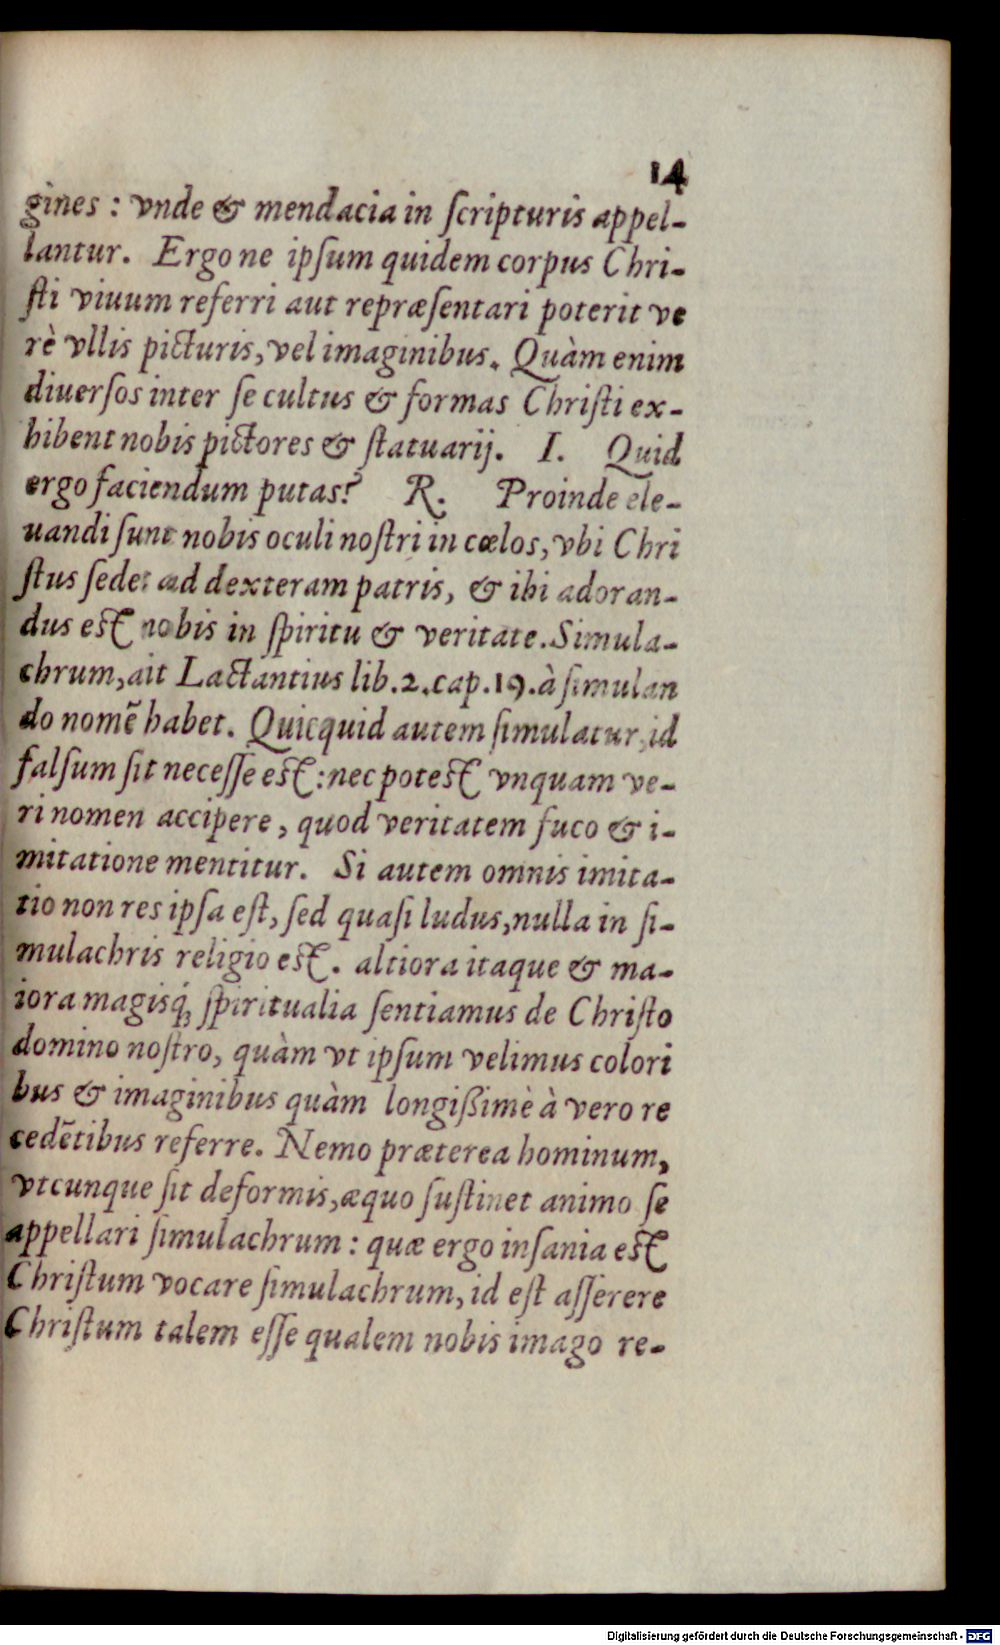 14
gines : vnde & mendacia in ſcripturis appel-
lantur. Ergo ne ipſum quidem corpus Chri-
ſti viuum referri aut repræſentari poterit ve
rè vllis picturis, vel imaginibus. Quàm enim
diuerſos inter ſe cultus & formas Chriſti ex-
hibent nobis pictores & ſtatuarij. I. Quid
ergo faciendum putas? R. Proinde ele-
uandi ſunt nobis oculi noſtri in cœlos, vbi Chri
ſtus ſedet ad dexteram patris, & ibi adoran-
dus eſt nobis in ſpiritu & veritate. Simula-
chrum, ait Lactantius lib. 2. cap. 19. à ſimulan
do nomē habet. Quicquid autem ſimulatur, id
falſum ſit neceſſe eſt : nec poteſt vnquam ve-
ri nomen accipere, quod veritatem fuco & i-
mitatione mentitur. Si autem omnis imita-
tio non res ipſa eſt, ſed quaſi ludus, nulla in ſi-
mulachris religio eſt. altiora itaque & ma-
iora magisq́; ſpiritualia ſentiamus de Chriſto
domino noſtro, quàm vt ipſum velimus colori
bus & imaginibus quàm longißimè à vero re
cedētibus referre. Nemo præterea hominum,
vtcunque ſit deformis, æquo ſuſtinet animo ſe
appellari ſimulachrum : quæ ergo inſania eſt
Chriſtum vocare ſimulachrum, id eſt aſſerere
Chriſtum talem eſſe qualem nobis imago re-
Digitalisierung gefördert durch die Deutsche Forschungsgemeinschaft - DFG